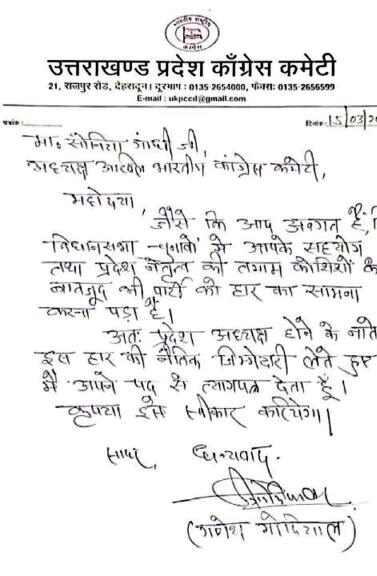 उत्तराखण्ड प्रदेश काँग्रेस कमेटी
21, राजपुर रोड, देहरादून। दूरभाष : 0135-2654000, फॅक्सः 0135-2656599
E-mail : ukpccd@gmail.com
पत्रांक:
दिनांक: 15/03/20
मा० सोनिया गांधी जी,
अध्यक्ष अखिल भारतीय कांग्रेस कमेटी,
महोदया,
जैसे कि आप अवगत हैं,
विधानसभा चुनावों में आपके सहयोग
तथा प्रदेश नेतृत्व की तमाम कोशिशों के
बावजूद भी पार्टी को हार का सामना
करना पड़ा है।
अतः प्रदेश अध्यक्ष होने के नाते
इस हार की नैतिक जिम्मेदारी लेते हुए
मैं अपने पद से त्यागपत्र देता हूँ।
कृपया इसे स्वीकार करियेगा।
सादर, धन्यवाद.
(गणेश गोदियाल)